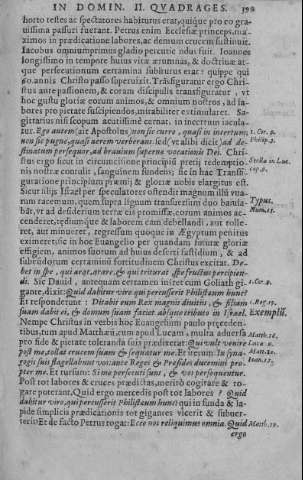 IN DOMIN. II. QVADRAGES. 199
horto testes ac spectatores habiturus erat, quique pro eo gra-
uissima passuri fuerant. Petrus enim Ecclesiæ princeps, ma-
ximo in prædicatione labore, ac demum crucem sustinuit.
Iacobus omnium primus gladio percutiendus fuit. Ioannes
longissimo in tempore huius vitæ ærumnas, & doctrinæ at-
que persecutionum certamina subiturus erat: quippe qui
60. annis Christo passo superuixit. Transfiguratur ergo Chri-
stus ante passionem, & coram discipulis transfiguratur, vt
hoc gustu gloriæ eorum animos, & omnium nostros, ad la-
bores pro pietate suscipiendos, mirabiliter extimularet. Sa-
gittarius nisi scopum acutissime cernat, in incertum iacula-
tur. Ego autem (ait Apostolus) non sic curro, quasi in incertum; 1. Cor. 9.
non sic pugno, quasi aerem verberans: sed (vt alibi dicit) ad de- Philip. 3.
stinatum persequor, ad brauium supernæ vocationis Dei. Chri-
stus ergo sicut in circumcisione principiū pretij redemptio- Stella in Luc.
nis nostræ contulit, sanguinem fundens; sic in hac Transfi- cap. 9.
guratione principium præmij & gloriæ nobis elargitus est.
Sicut filijs Israel per speculatores ostendit magnum illū vuæ Typus.
racemum, quem supra lignum transuersum duo baiula- Num. 13.
bāt, vt ad desiderium terræ eis promissæ eorum animos ac-
cenderet, tędiumque & laborem eam debellandi, aut tolle-
ret, aut minueret, regressum quoque in Ægyptum penitus
eximeret; sic in hoc Euangelio per quandam futuræ gloriæ
effigiem, animos suorum ad huius deserti fastidium, & ad
subeundorum certaminū fortitudinem Christus excitat. De-
bet in spe, qui arat, arare, & qui triturat spe fructus percipien-
di. Sic Dauid, antequam certamen iniret cum Goliath gi- 1. Cor. 9.
gante, dixit: Quid dabitur viro qui percusserit Philistæum hunc?
Et respondetur: Ditabit eum Rex magnis diuitiis, & filiam 1. Reg. 17.
suam dabit ei, & domum suam faciet absque tributo in Israel. Exemplū.
Nempe Christus in verbis hoc Euangelium paulo præceden-
tibus, tum apud Matthæū, tum apud Lucam, multa aduersa Matth. 16.
pro fide & pietate toleranda suis prædixerat: Qui vult venire Luca 9.
post me, tollat crucem suam & sequatur me. Et iterum: In syna- Matt. 10.
gogis suis flagellabunt vos: ante Reges & Præsides ducemini pro- Ioan. 15.
pter me. Et rursum: Si me persecuti sunt, & vos persequentur.
Post tot labores & cruces prædictas, meritò cogitare & ro-
gare poterant, Quid ergo mercedis post tot labores? Quid
dabitur viro, qui percusserit Philistæum hunc? qui in funda & la-
pide simplicis prædicationis tot gigantes vicerit & subuer-
terit? Et de facto Petrus rogat: Ecce nos reliquimus omnia. Quid Matth. 19.
ergo